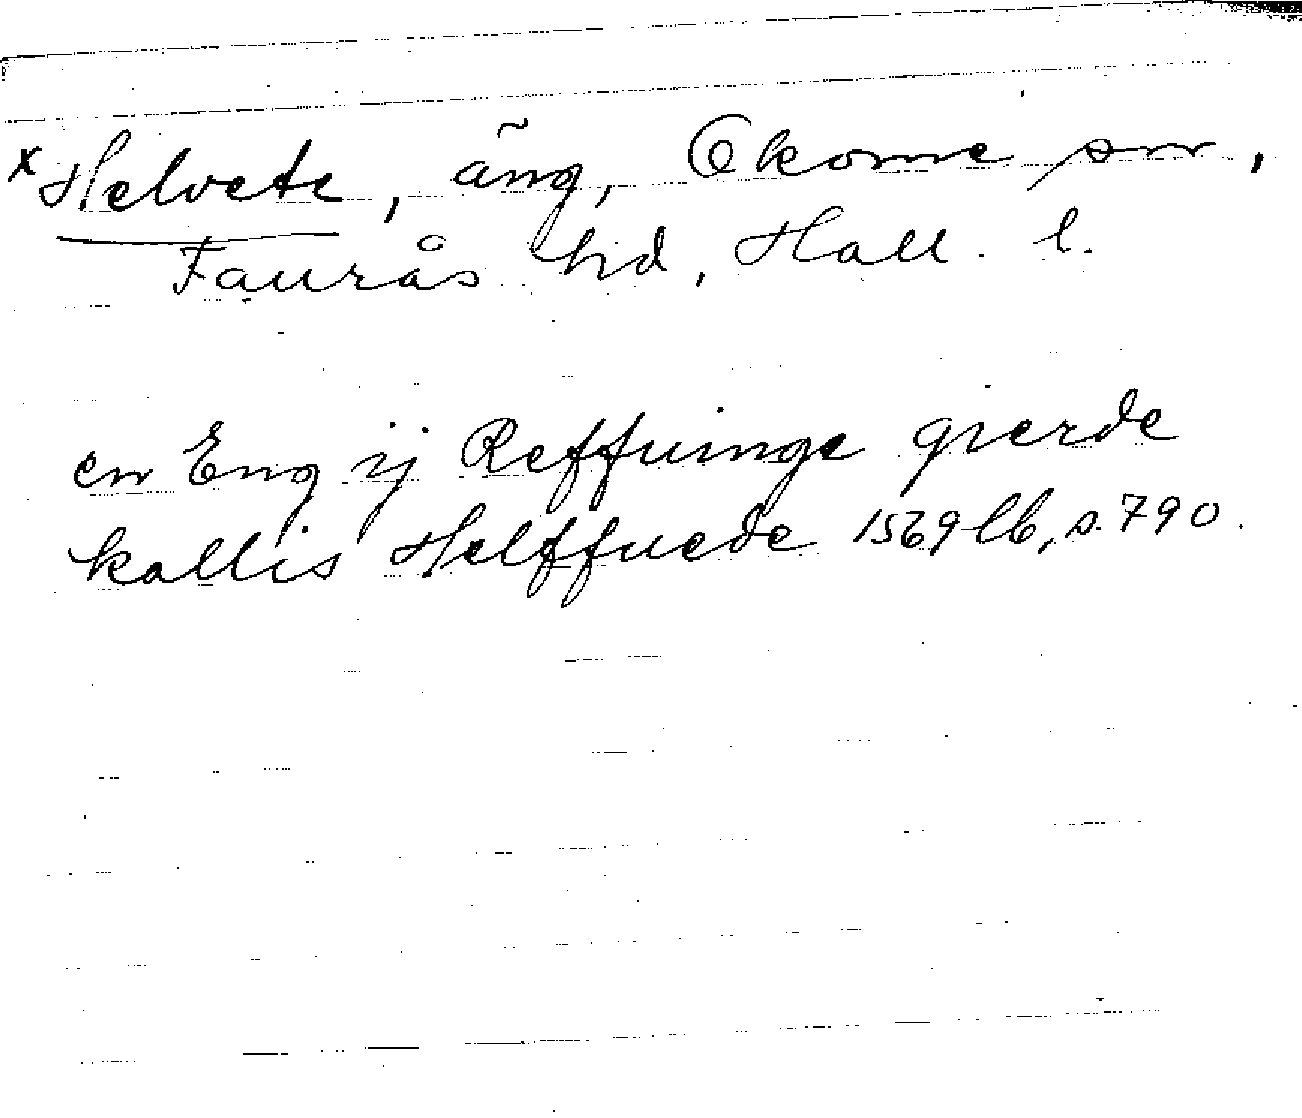 x Helvete, äng, Okome sn,
Faurås hd, Hall. l.
en Eng ij Reffuinge gierde
kallis Helffuede 1569 lb, s. 790.